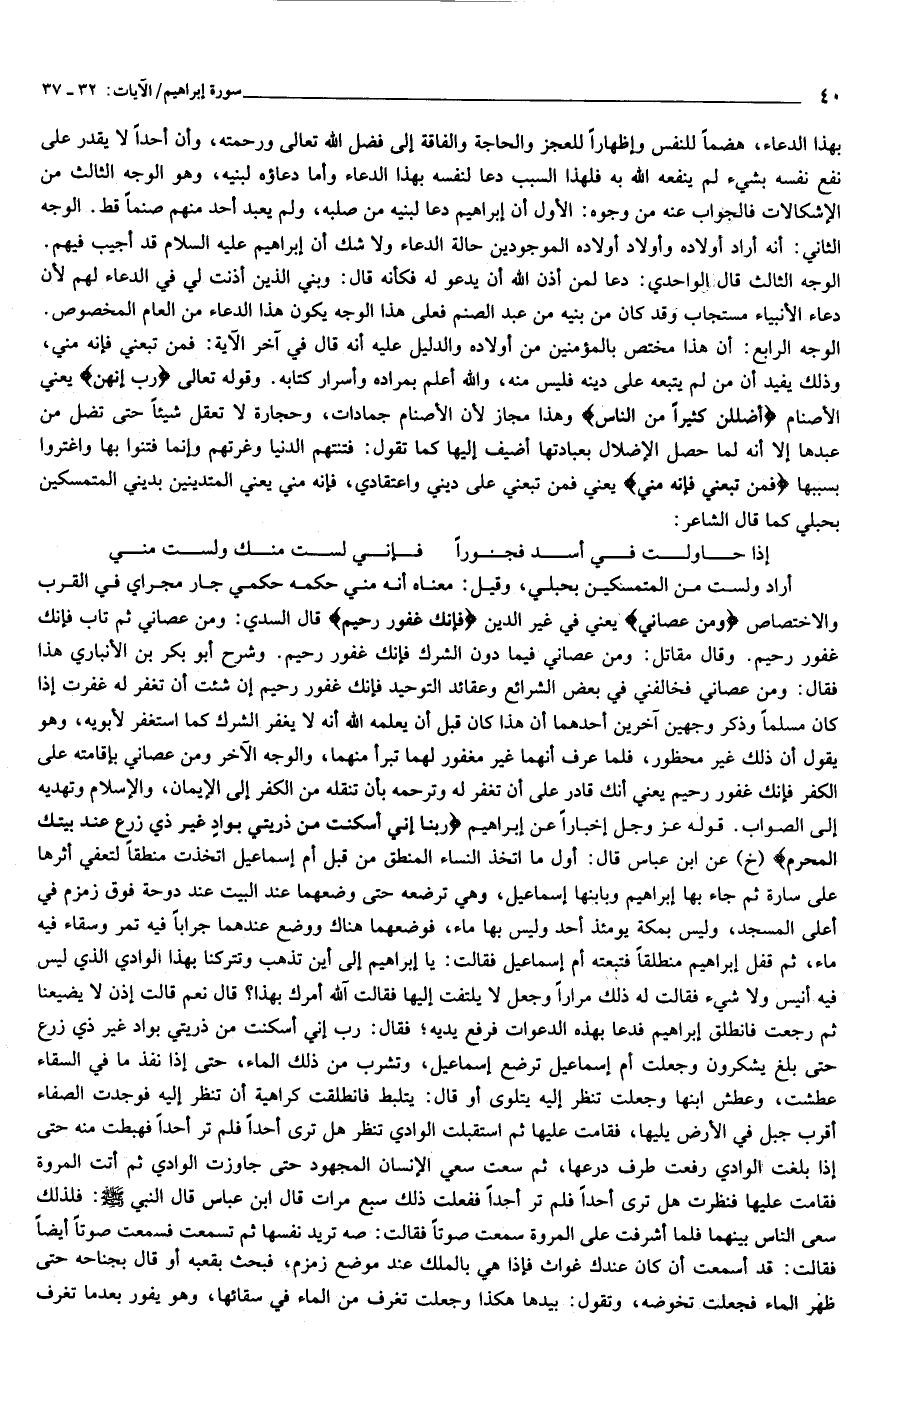 ٤٠ سورة إبراهيم/ الآيات: ٣٢ ـ ٣٧
بهذا الدعاء، هضماً للنفس وإظهاراً للعجز والحاجة والفاقة إلى فضل الله تعالى ورحمته، وأن أحداً لا يقدر على
نفع نفسه بشيء لم ينفعه الله به فلهذا السبب دعا لنفسه بهذا الدعاء وأما دعاؤه لبنيه، وهو الوجه الثالث من
الإشكالات فالجواب عنه من وجوه: الأول أن إبراهيم دعا لبنيه من صلبه، ولم يعبد أحد منهم صنماً قط. الوجه
الثاني: أنه أراد أولاده وأولاد أولاده الموجودين حالة الدعاء ولا شك أن إبراهيم عليه السلام قد أجيب فيهم.
الوجه الثالث قال الواحدي: دعا لمن أذن الله أن يدعو له فكأنه قال: وبني الذين أذنت لي في الدعاء لهم لأن
دعاء الأنبياء مستجاب وقد كان من بنيه من عبد الصنم فعلى هذا الوجه يكون هذا الدعاء من العام المخصوص.
الوجه الرابع: أن هذا مختص بالمؤمنين من أولاده والدليل عليه أنه قال في آخر الآية: فمن تبعني فإنه مني،
وذلك يفيد أن من لم يتبعه على دينه فليس منه، والله أعلم بمراده وأسرار كتابه. وقوله تعالى ﴿رب إنهن﴾ يعني
الأصنام ﴿أضللن كثيراً من الناس﴾ وهذا مجاز لأن الأصنام جمادات، وحجارة لا تعقل شيئاً حتى تضل من
عبدها إلا أنه لما حصل الإضلال بعبادتها أضيف إليها كما تقول: فتنتهم الدنيا وغرتهم وإنما فتنوا بها واغتروا
بسببها ﴿فمن تبعني فإنه مني﴾ يعني فمن تبعني على ديني واعتقادي، فإنه مني يعني المتدينين بديني المتمسكين
بحبلي كما قال الشاعر:
إذا حاولت في أسد فجوراً فإني لست منك ولست مني
أراد ولست من المتمسكين بحبلي، وقيل: معناه أنه مني حكمه حكمي جار مجراي في القرب
والاختصاص ﴿ومن عصاني﴾ يعني في غير الدين ﴿فإنك غفور رحيم﴾ قال السدي: ومن عصاني ثم تاب فإنك
غفور رحيم. وقال مقاتل: ومن عصاني فيما دون الشرك فإنك غفور رحيم. وشرح أبو بكر بن الأنباري هذا
فقال: ومن عصاني فخالفني في بعض الشرائع وعقائد التوحيد فإنك غفور رحيم إن شئت أن تغفر له غفرت إذا
كان مسلماً وذكر وجهين آخرين أحدهما أن هذا كان قبل أن يعلمه الله أنه لا يغفر الشرك كما استغفر لأبويه، وهو
يقول أن ذلك غير محظور، فلما عرف أنهما غير مغفور لهما تبرأ منهما، والوجه الآخر ومن عصاني بإقامته على
الكفر فإنك غفور رحيم يعني أنك قادر على أن تغفر له وترحمه بأن تنقله من الكفر إلى الإيمان، والإسلام وتهديه
إلى الصواب. قوله عز وجل إخباراً عن إبراهيم ﴿ربنا إني أسكنت من ذريتي بوادٍ غير ذي زرع عند بيتك
المحرم﴾ (خ) عن ابن عباس قال: أول ما اتخذ النساء المنطق من قبل أم إسماعيل اتخذت منطقاً لتعفي أثرها
على سارة ثم جاء بها إبراهيم وبابنها إسماعيل، وهي ترضعه حتى وضعهما عند البيت عند دوحة فوق زمزم في
أعلى المسجد، وليس بمكة يومئذ أحد وليس بها ماء، فوضعهما هناك ووضع عندهما جراباً فيه تمر وسقاء فيه
ماء، ثم قفل إبراهيم منطلقاً فتبعته أم إسماعيل فقالت: يا إبراهيم إلى أين تذهب وتتركنا بهذا الوادي الذي ليس
فيه أنيس ولا شيء فقالت له ذلك مراراً وجعل لا يلتفت إليها فقالت آلله أمرك بهذا؟ قال نعم قالت إذن لا يضيعنا
ثم رجعت فانطلق إبراهيم فدعا بهذه الدعوات فرفع يديه؛ فقال: رب إني أسكنت من ذريتي بواد غير ذي زرع
حتى بلغ يشكرون وجعلت أم إسماعيل ترضع إسماعيل، وتشرب من ذلك الماء، حتى إذا نفذ ما في السقاء
عطشت، وعطش ابنها وجعلت تنظر إليه يتلوى أو قال: يتلبط فانطلقت كراهية أن تنظر إليه فوجدت الصفاء
أقرب جبل في الأرض يليها، فقامت عليها ثم استقبلت الوادي تنظر هل ترى أحداً فلم تر أحداً فهبطت منه حتى
إذا بلغت الوادي رفعت طرف درعها، ثم سعت سعي الإنسان المجهود حتى جاوزت الوادي ثم أتت المروة
فقامت عليها فنظرت هل ترى أحداً فلم تر أحداً ففعلت ذلك سبع مرات قال ابن عباس قال النبي ﷺ: فلذلك
سعى الناس بينهما فلما أشرفت على المروة سمعت صوتاً فقالت: صه تريد نفسها ثم تسمعت فسمعت صوتاً أيضاً
فقالت: قد أسمعت أن كان عندك غواث فإذا هي بالملك عند موضع زمزم، فبحث بقعبه أو قال بجناحه حتى
ظهر الماء فجعلت تخوضه، وتقول: بيدها هكذا وجعلت تغرف من الماء في سقائها، وهو يفور بعدما تغرف